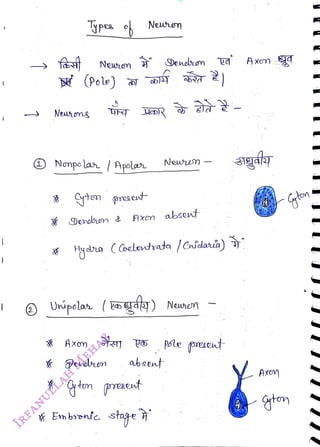 Types of Neuron
→ किसी Neuron में Dendron एवं Axon ध्रुव
(Pole) का कार्य करते है|
→ Neurons पाँच प्रकार के होते है -
① Nonpolar / Apolar Neuron - अध्रुवीय
* Cyton present
* Dendron & Axon absent
Cyton
* Hydra (Coelentrata / Cnidaria) में
② Unipolar (एकध्रुवीय) Neuron -
* Axon जैसा एक Pole present
* Dendron absent
* Cyton present
* Embronic stage में
Axon
Cyton
IRFANULLAH MEHAR